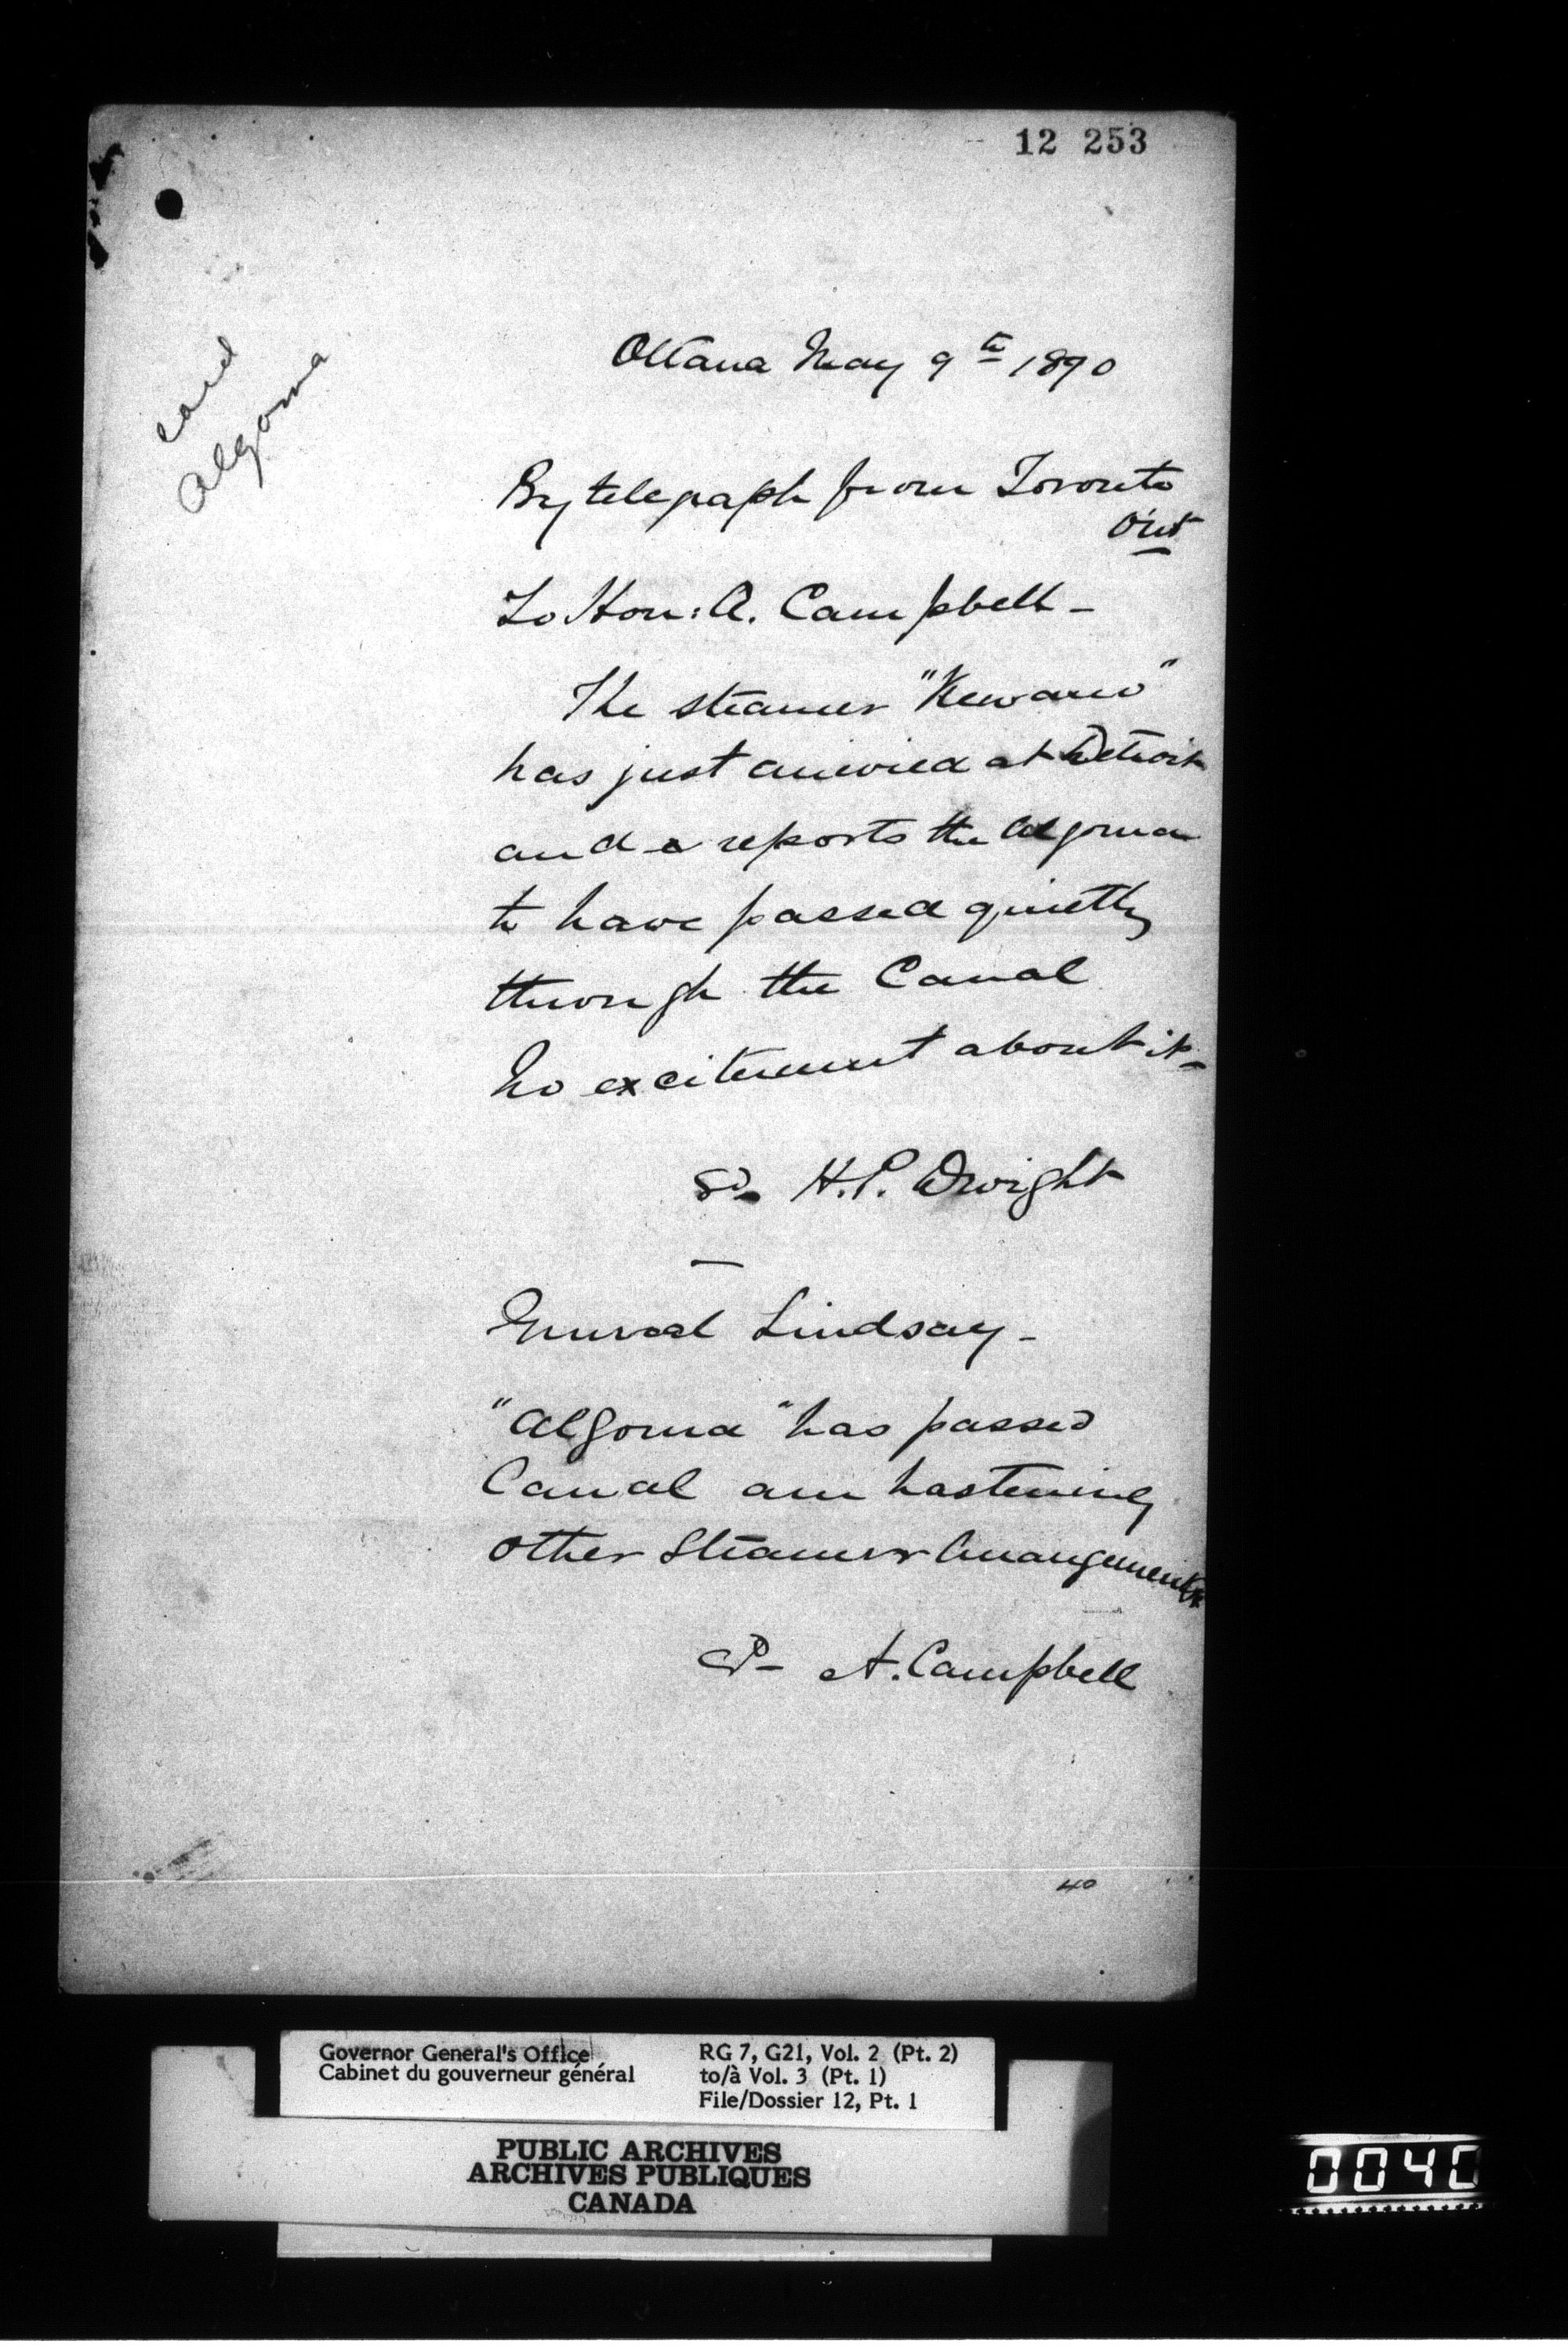 12 253
card
Algoma
Ottawa May 9th 1890
By telegraph from Toronto
Ont
To Hon: A. Campbell -
The steamer "Keweenaw"
has just arrived at Detroit
and reports the Algoma
to have passed quietly
through the Canal
no excitement about it -
Sd. H.P. Dwight
General Lindsay -
"Algoma" has passed
Canal am hastening
other Steamer Arrangements
Sd - A. Campbell
40
Governor General's Office
Cabinet du gouverneur général
RG 7, G21, Vol. 2 (Pt. 2)
to/à Vol. 3 (Pt. 1)
File/Dossier 12, Pt. 1
PUBLIC ARCHIVES
ARCHIVES PUBLIQUES
CANADA
0040